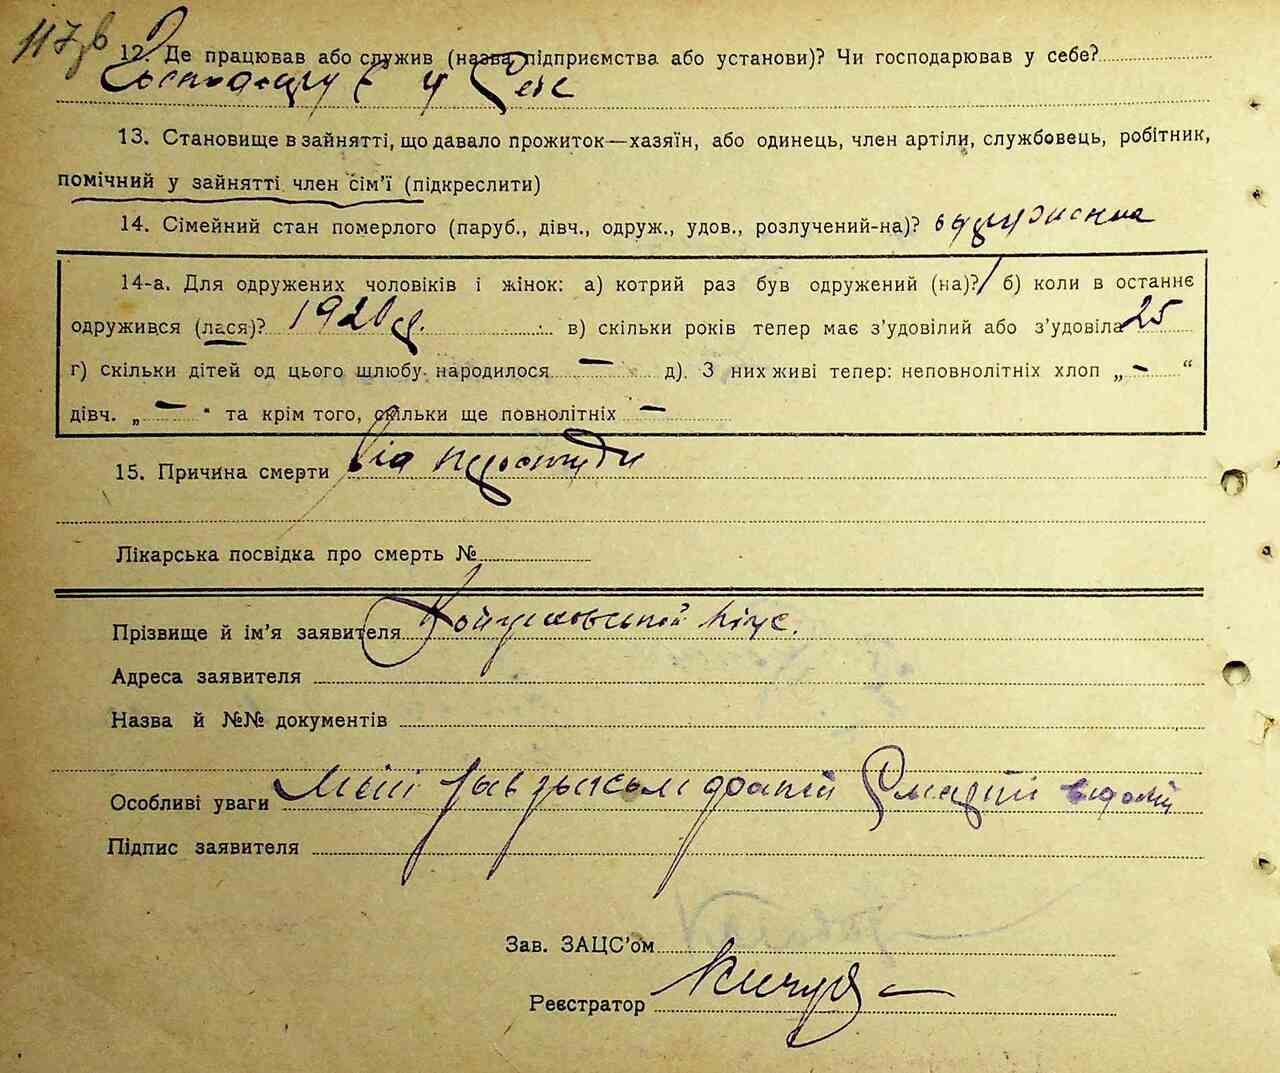 117зв
12. Де працював або служив (назва підприємства або установи)? Чи господарював у себе?
Господарує у себе
13. Становище в зайнятті, що давало прожиток—хазяїн, або одинець, член артіли, службовець, робітник,
помічний у зайнятті член сім'ї (підкреслити)
14. Сімейний стан померлого (паруб., дівч., одруж., удов., розлучений-на)? одружена
14-а. Для одружених чоловіків і жінок: а) котрий раз був одружений (на)? 1 б) коли в останнє
одружився (лася)? в) скільки років тепер має з'удовілий або з'удовіла 25
г) скільки дітей од цього шлюбу народилося — д). З них живі тепер: неповнолітніх хлоп „ — “
дівч. „ — “ та крім того, скільки ще повнолітніх —
15. Причина смерти від простуди
Лікарська посвідка про смерть №
Прізвище й ім'я заявителя
Адреса заявителя
Назва й №№ документів
Особливі уваги
Підпис заявителя
Зав. ЗАЦС'ом
Реєстратор